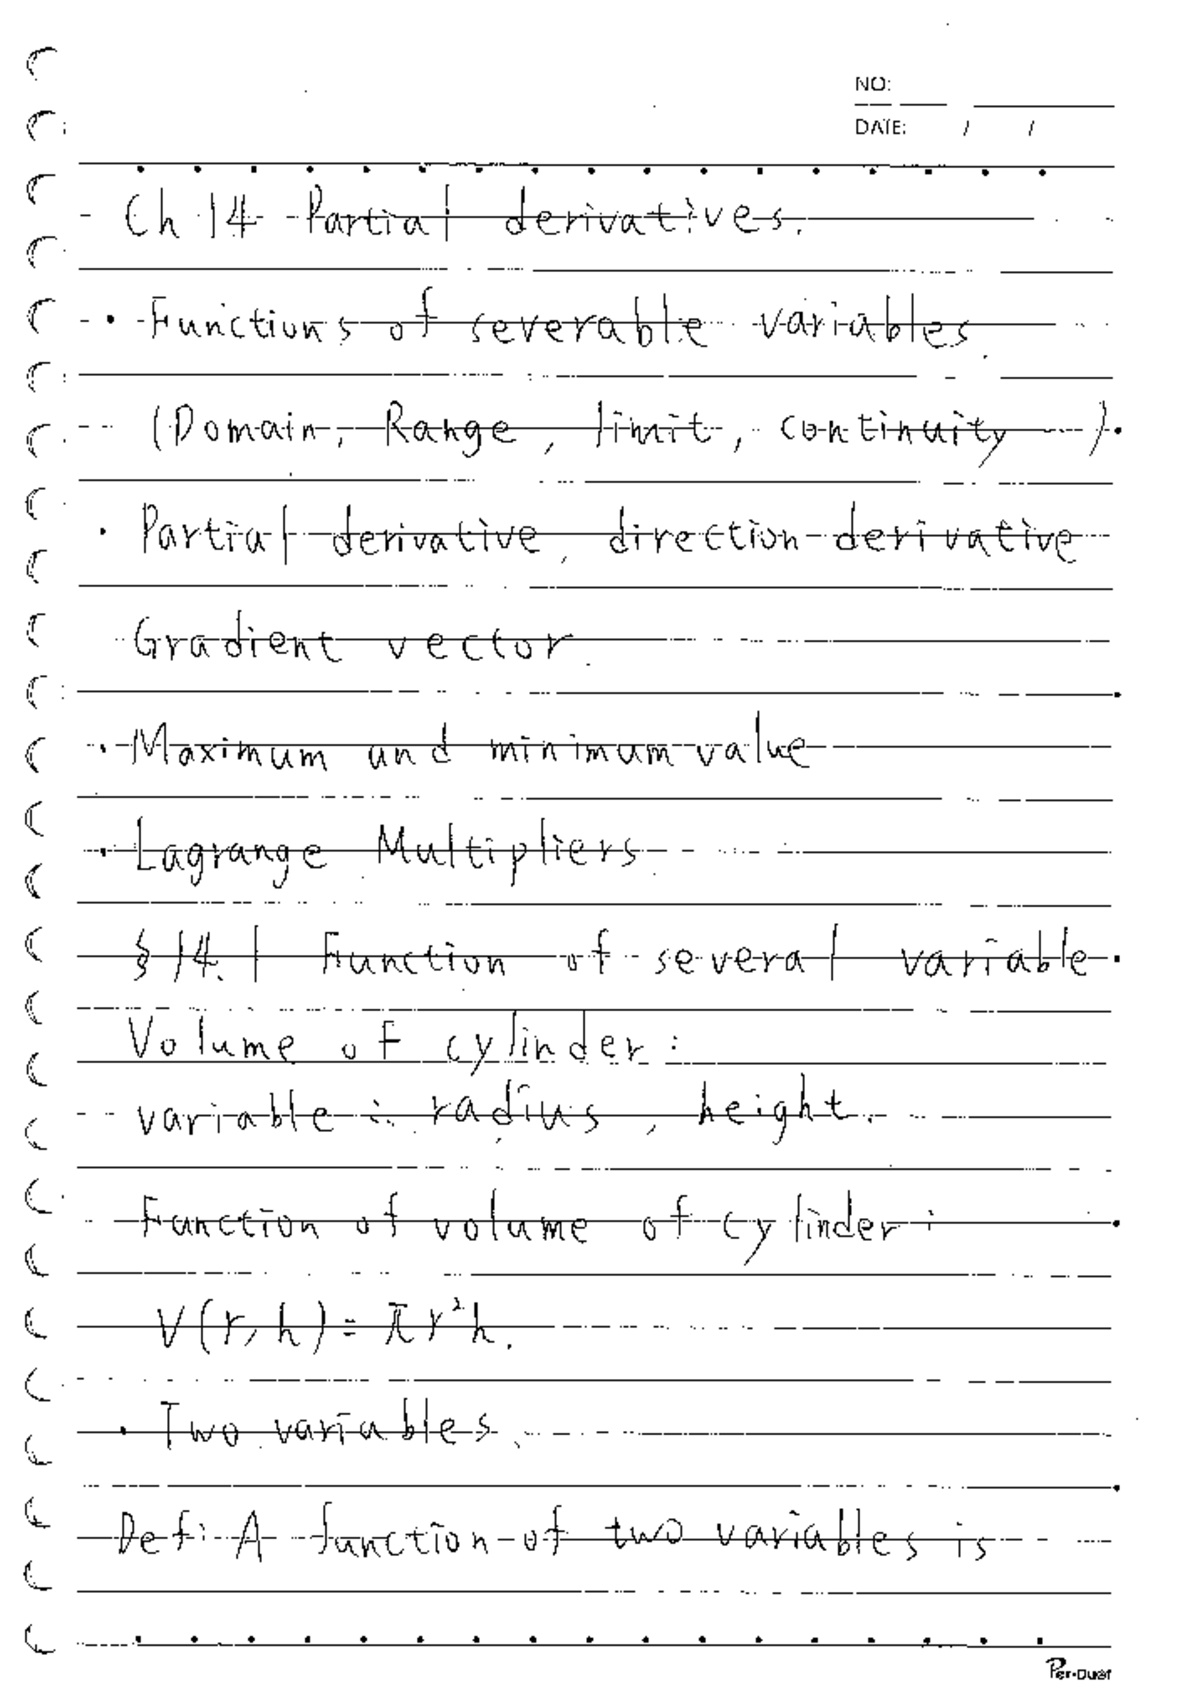 NO:
DATE: / /
Ch 14 Partial derivatives.
• Functions of severable variables.
(Domain, Range, limit, continuity ).
• Partial derivative, direction derivative
Gradient vector.
• Maximum and minimum value
• Lagrange Multipliers.
§ 14.1 Function of several variable.
Volume of cylinder:
variable: radius, height.
Function of volume of cylinder:
V(r,h) = πr²h.
• Two variables.
Def: A function of two variables is
Per-Duet